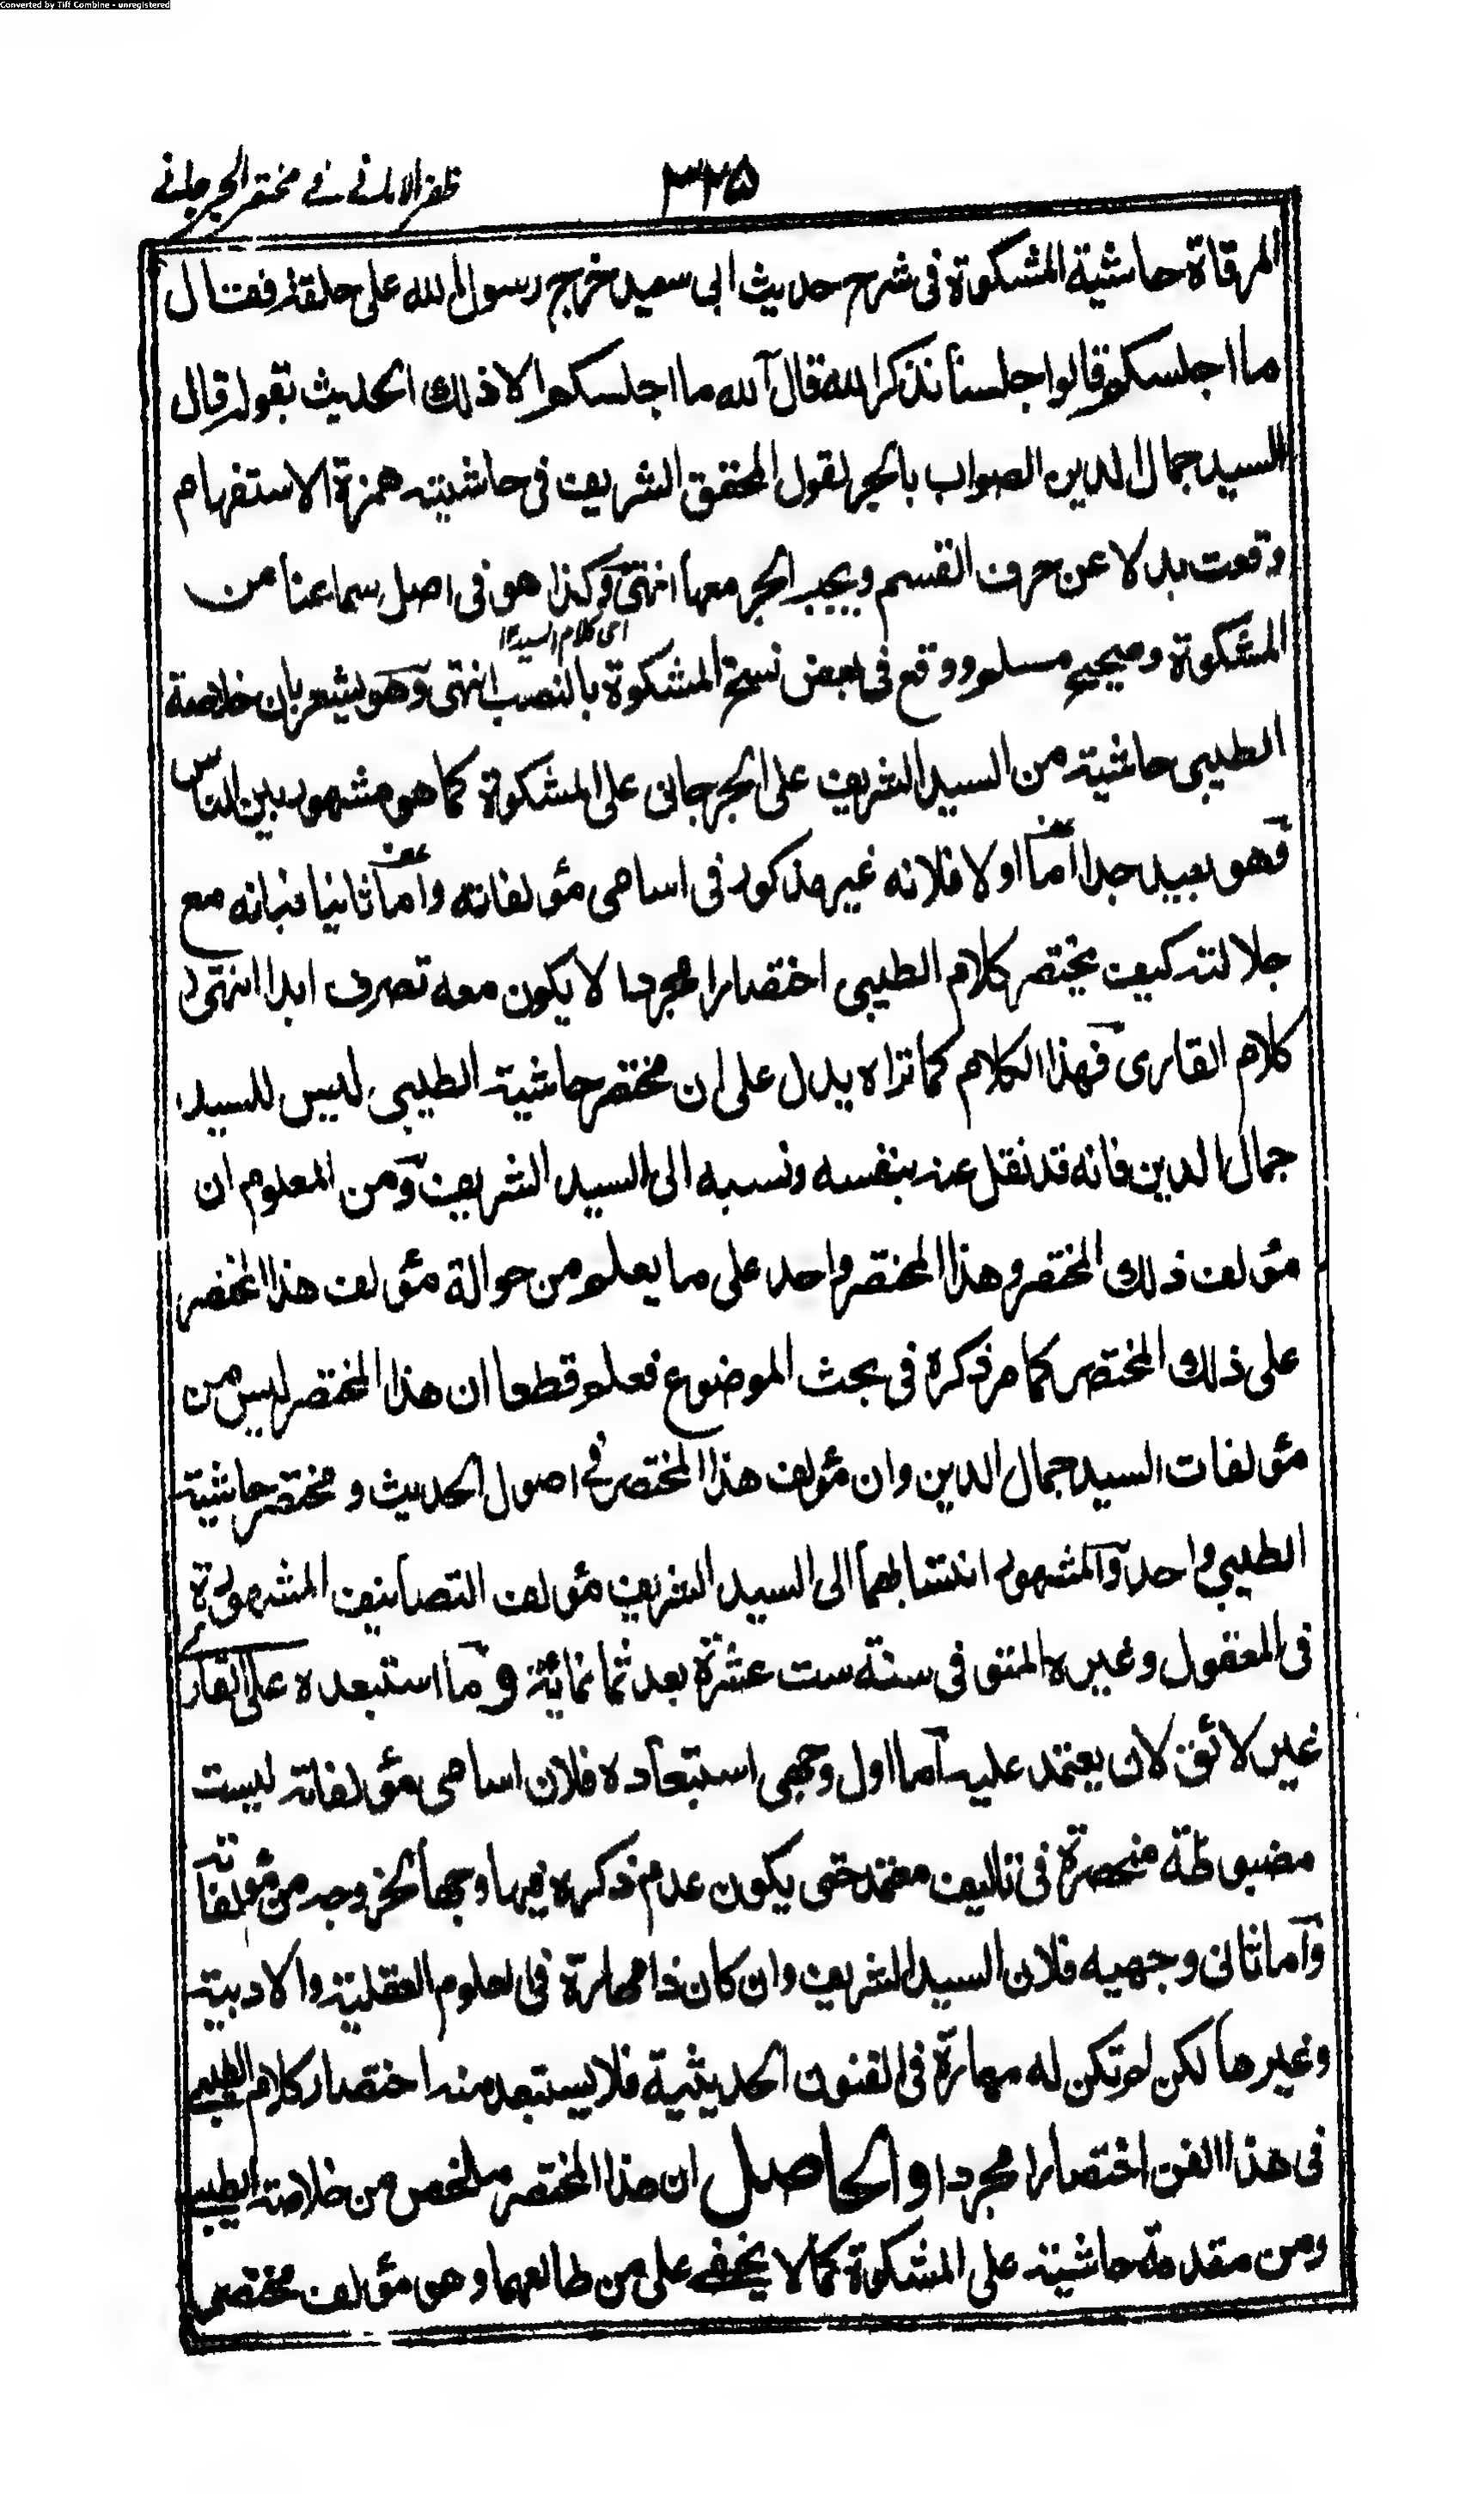 Converted by Tiff Combine - unregistered
ظفر الامانے فے مختصر الجرجانے
۳۲۵
المرقاة حاشية المشكوة فى شرح حديث ابى سعيد خرج رسول الله على حلقة فقال
ما اجلسكم قالوا جلسنا نذكر الله قال آلله ما اجلسكم الا ذلك الحديث بقوله قال
السيد جمال الدين الصواب بالجر لقول المحقق الشريف فى حاشيته همزة الاستفهام
وقعت بدلا عن حرف القسم ويجب الجر معها انتهى وكذا هو فى اصل سماعنا من
اى كلام السيد
المشكوة وصحيح مسلم ووقع فى بعض نسخ المشكوة بالنصب انتهى وهو يشعر بان خلاصة
الطيبى حاشية من السيد الشريف على الجرجانى على المشكوة كما هو مشهور بين الناس
فهو بعيد جدا اما اولا فلانه غير مذكور فى اسامى مؤلفاته واما ثانيا فبانه مع
جلالته كيف يختصر كلام الطيبى اختصارا مجردا لا يكون معه تصرف ابدا انتهى
كلام القارى فهذا الكلام كما تراه يدل على ان مختصر حاشية الطيبى ليس للسيد
جمال الدين فانه قد نقل عنه بنفسه ونسبه الى السيد الشريف ومن المعلوم ان
مؤلف ذلك المختصر وهذا المختصر واحد على ما يعلم من حوالة مؤلف هذا المختصر
على ذلك المختصر كما مر ذكره فى بحث الموضوع فعلم قطعا ان هذا المختصر ليس من
مؤلفات السيد جمال الدين وان مؤلف هذا المختصر فے اصول الحديث و مختصر حاشية
الطيبي واحد والمشهور انتسابهما الى السيد الشريف مؤلف التصانيف المشهورة
فى المعقول وغيره المتوفى سنة ست عشرة بعد ثمانمائة و ما استبعده على القارى
غير لائق لان يعتمد عليه اما اول وجهى استبعاده فلان اسامى مؤلفاته ليست
مضبوطة منحصرة فى تاليف معتمد حتى يكون عدم ذكره فيها وجها لخروجه من مؤلفاته
واما ثانى وجهيه فلان السيد الشريف وان كان ذا مهارة فى العلوم العقلية والادبية
وغيرها لكن لم تكن له مهارة فى الفنون الحديثية فلا يستبعد منه اختصار كلام الطيبے
فى هذا الفن اختصارا مجردا والحاصل ان هذا المختصر ملخص من خلاصة الطيبے
ومن مقدمة حاشيته على المشكوة كما لا يخفے على من طالعهما وهو مؤلف مختصر